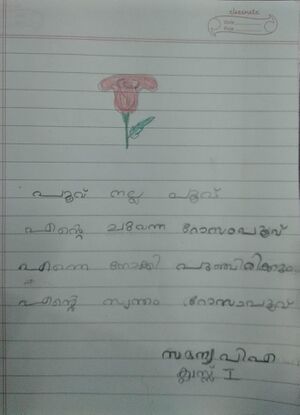 classmate
Date
Page
പൂവ് നല്ല പൂവ്
എന്റെ ചുവന്ന റോസാപൂവ്
എന്നെ നോക്കി പുഞ്ചിരിക്കും
എന്റെ സ്വന്തം റോസാപൂവ്
സമന്വ പി എ
ക്ലാസ്സ് I